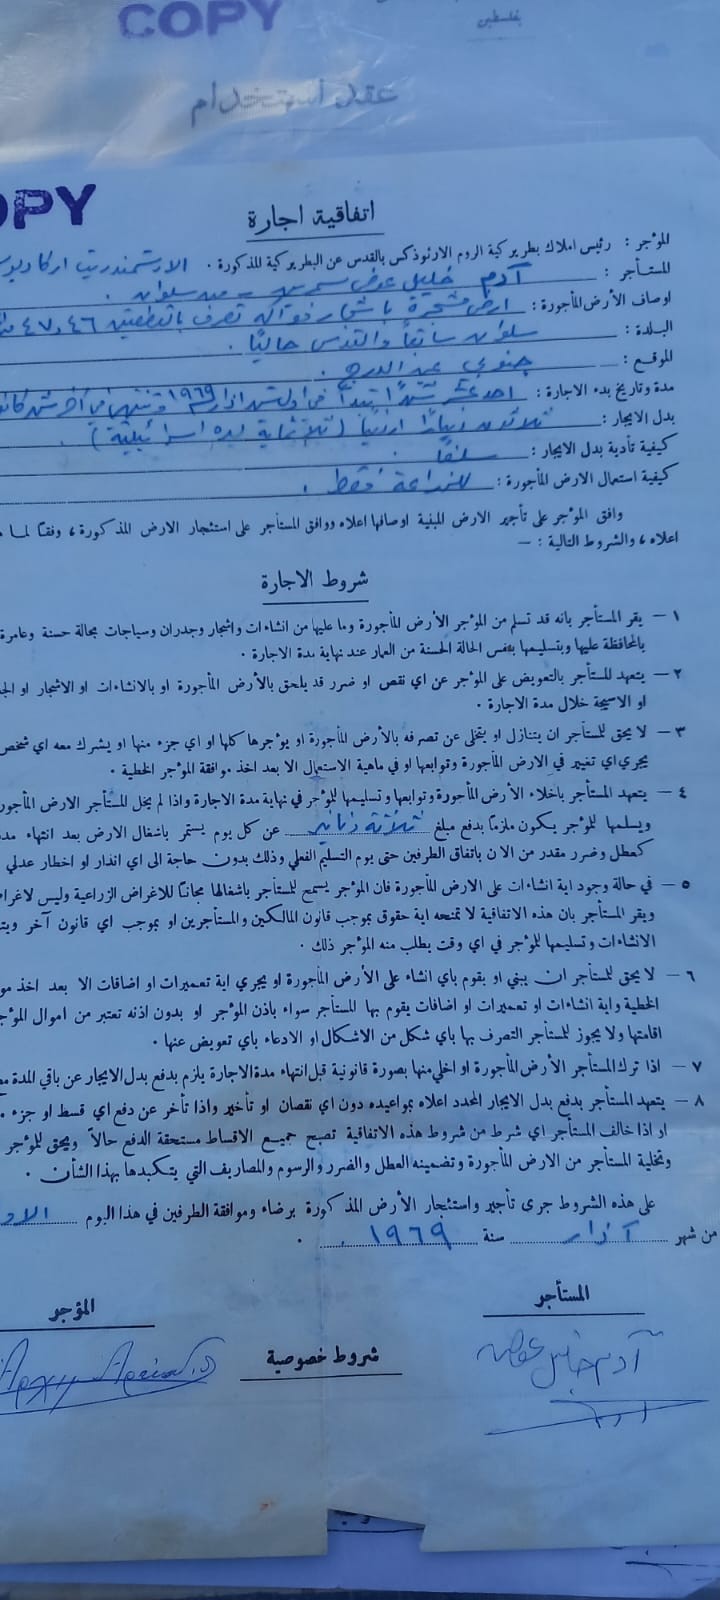 COPY
بفلسطين
عقد استخدام
COPY
اتفاقية اجارة
المؤجر : رئيس املاك بطريركية الروم الارثوذكس بالقدس عن البطريركية المذكورة . الارشمندريت
المستأجر : آدم خليل عوض سمرين - من سلوان .
اوصاف الأرض المأجورة : ارض مشجرة باشجار فواكه تعرف بالقطعتين ٤٦ و ٤٧
البلدة : سلوان سابقاً والقدس حالياً .
الموقع : جنوبي عين الدرج .
مدة وتاريخ بدء الاجارة : احد عشر شهراً تبدأ من اول شهر اذار ١٩٦٩ وتنتهي في آخر شهر
بدل الايجار : ثلاثون ديناراً اردنياً (ثلاثماية ليره اسرائيلية) .
كيفية تأدية بدل الايجار : سلفاً .
كيفية استعمال الارض المأجورة : للزراعة فقط .
وافق المؤجر على تأجير الارض المبنية اوصافها اعلاه ووافق المستأجر على استئجار الارض المذكورة ، وفقاً لما
اعلاه ، والشروط التالية : —
شروط الاجارة
١ — يقر المستأجر بانه قد تسلم من المؤجر الأرض المأجورة وما عليها من انشاءات واشجار وجدران وسياجات بحالة حسنة وعامرة
بالمحافظة عليها وبتسليمها بنفس الحالة الحسنة من العمار عند نهاية مدة الاجارة .
٢ — يتعهد المستأجر بالتعويض على المؤجر عن اي نقص او ضرر قد يلحق بالأرض المأجورة او بالانشاءات او الاشجار او
او الاسيجة خلال مدة الاجارة .
٣ — لا يحق للمستأجر ان يتنازل او يتخلى عن تصرفه بالأرض المأجورة او يؤجرها كلها او اي جزء منها او يشرك معه اي شخص
يجري اي تغيير في الارض المأجورة وتوابعها او في ماهية الاستعمال الا بعد اخذ موافقة المؤجر الخطية .
٤ — يتعهد المستأجر باخلاء الأرض المأجورة وتوابعها وتسليمها للمؤجر في نهاية مدة الاجارة واذا لم يخل المستأجر الارض
ويسلمها للمؤجر يكون ملزماً بدفع مبلغ ثلاثة دنانير عن كل يوم يستمر باشغال الارض بعد انتهاء
كعطل وضرر مقدر من الان باتفاق الطرفين حتى يوم التسليم الفعلي وذلك بدون حاجة الى اي انذار او اخطار عدلي
٥ — في حالة وجود اية انشاءات على الارض المأجورة فان المؤجر يسمح للمستأجر باشغالها مجاناً للاغراض الزراعية وليس
ويقر المستأجر بان هذه الاتفاقية لا تمنحه اية حقوق بموجب قانون المالكين والمستأجرين او بموجب اي قانون آخر
الانشاءات وتسليمها للمؤجر في اي وقت يطلب منه المؤجر ذلك .
٦ — لا يحق للمستأجر ان يبني او يقوم باي انشاء على الأرض المأجورة او يجري اية تعميرات او اضافات الا بعد اخذ
الخطية واية انشاءات او تعميرات او اضافات يقوم بها المستأجر سواء باذن المؤجر او بدون اذنه تعتبر من اموال
اقامتها ولا يجوز للمستأجر التصرف بها باي شكل من الاشكال او الادعاء باي تعويض عنها .
٧ — اذا ترك المستأجر الأرض المأجورة او اخلي منها بصورة قانونية قبل انتهاء مدة الاجارة يلزم بدفع بدل الايجار عن باقي المدة
٨ — يتعهد المستأجر بدفع بدل الايجار المحدد اعلاه بمواعيده دون اي نقصان او تأخير واذا تأخر عن دفع اي قسط او جزء
او اذا خالف المستأجر اي شرط من شروط هذه الاتفاقية تصبح جميع الاقساط مستحقة الدفع حالاً ويحق للمؤجر
وتخلية المستأجر من الارض المأجورة وتضمينه العطل والضرر والرسوم والمصاريف التي يتكبدها بهذا الشأن .
على هذه الشروط جرى تأجير واستئجار الأرض المذكورة برضاء وموافقة الطرفين في هذا اليوم
من شهر آذار سنة ١٩٦٩ .
المستأجر
المؤجر
شروط خصوصية